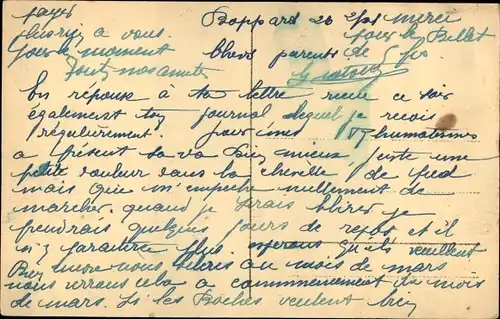 Boppard 20
merci
pour le Billet
de 5 frs
à vous
pour le moment
chers parents
En réponse à ta lettre reçue ce soir
également ton journal lequel je reçois
régulièrement. pour mes rhumatismes
à présent sa va bien mieux, juste une
petite douleur dans la cheville de pied
mais qui m'empeche nullement de
marcher. quand je serais libérer je
prendrais quelques jours de repos et il
n'y paraitra plus. esperons qu'ils veuillent
Bien nous libérés au mois de mars
nous verrons cela a commencement du mois
de mars. Si les Boches veulent bien